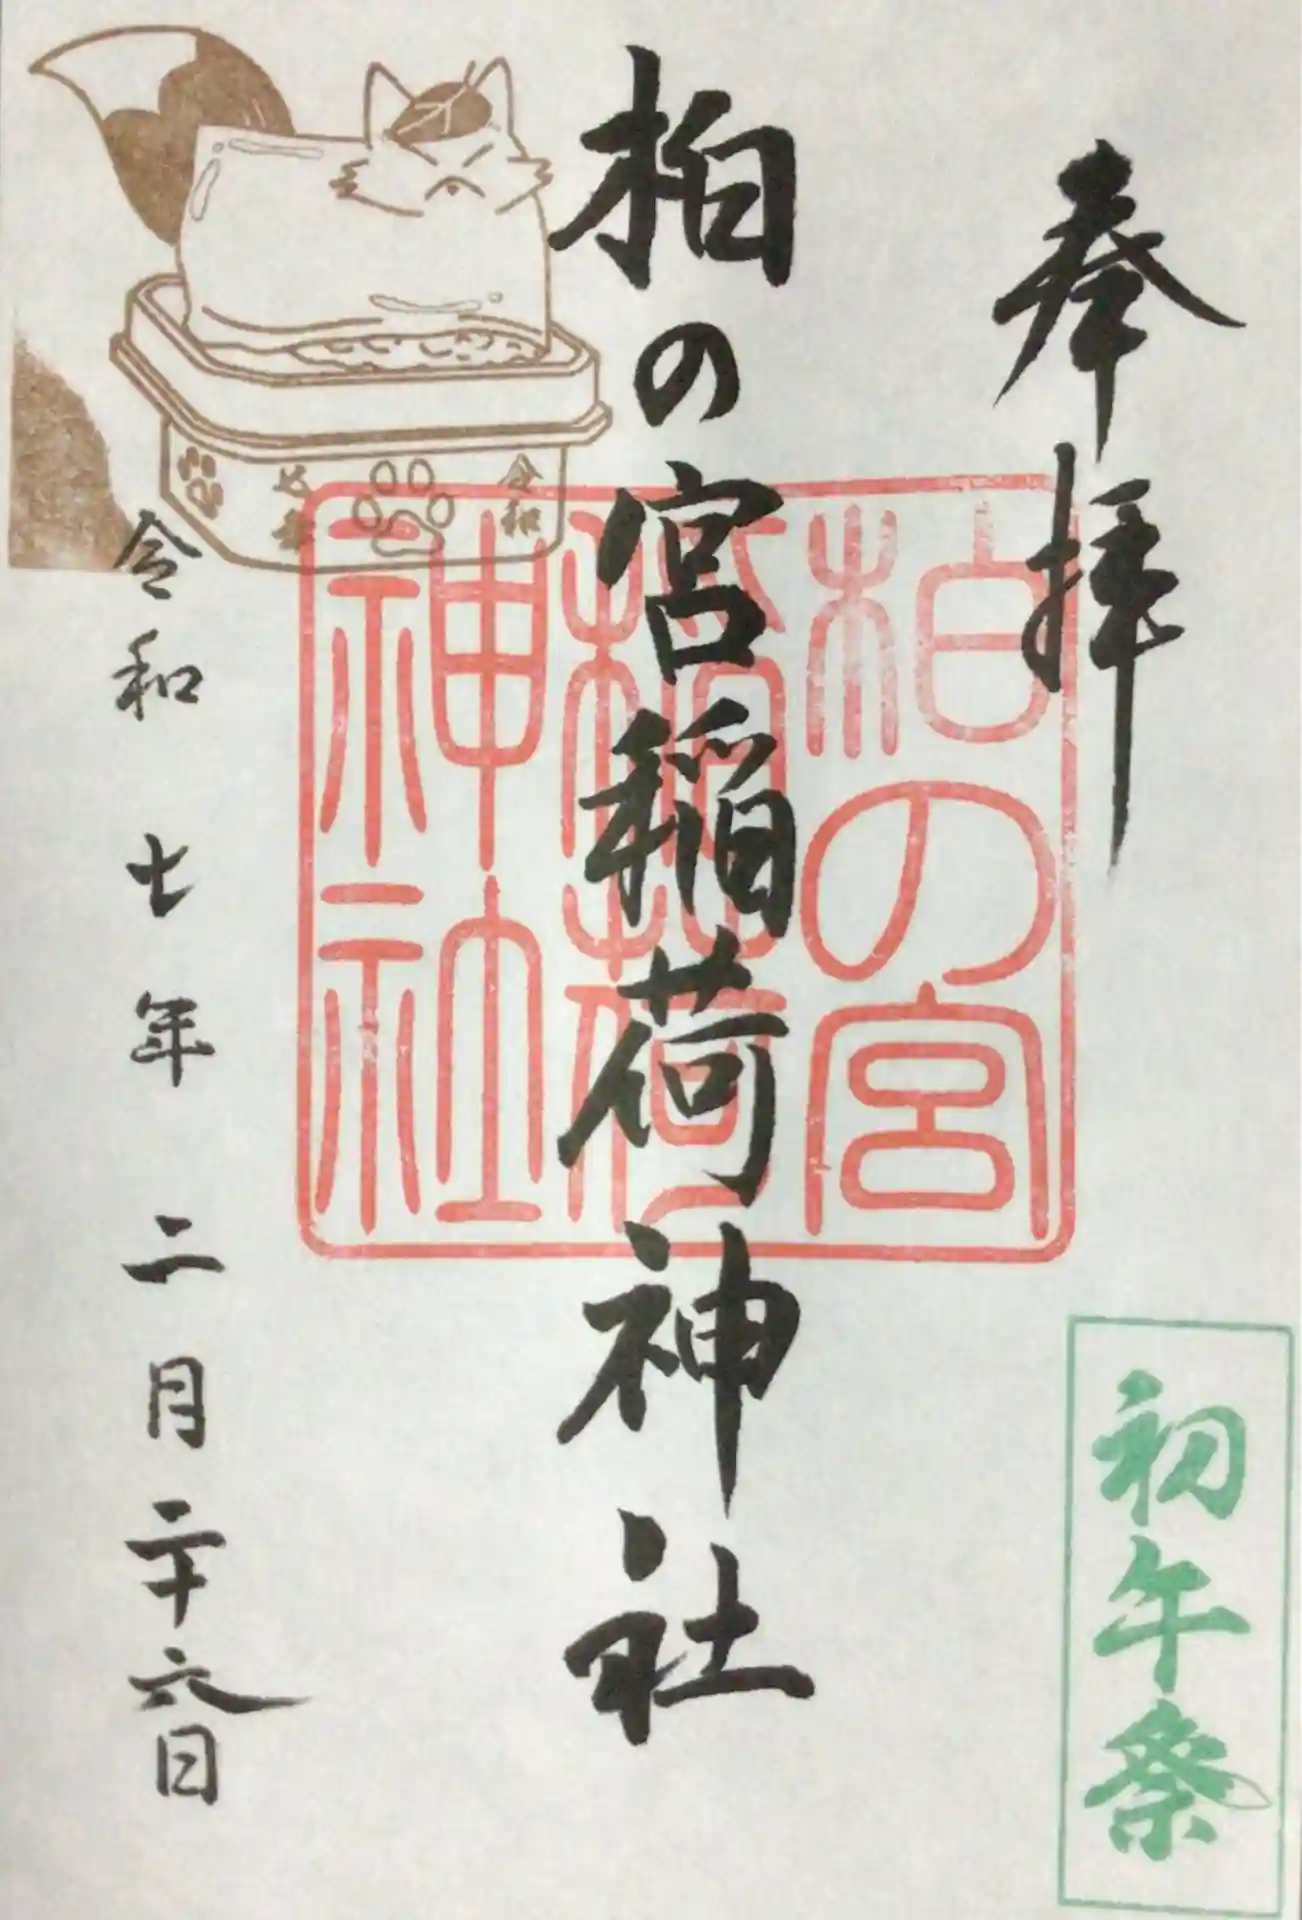 奉拝
柏の宮稲荷神社
令和七年二月二十六日
柏の宮
稲荷
神社
初午祭
令和
七年